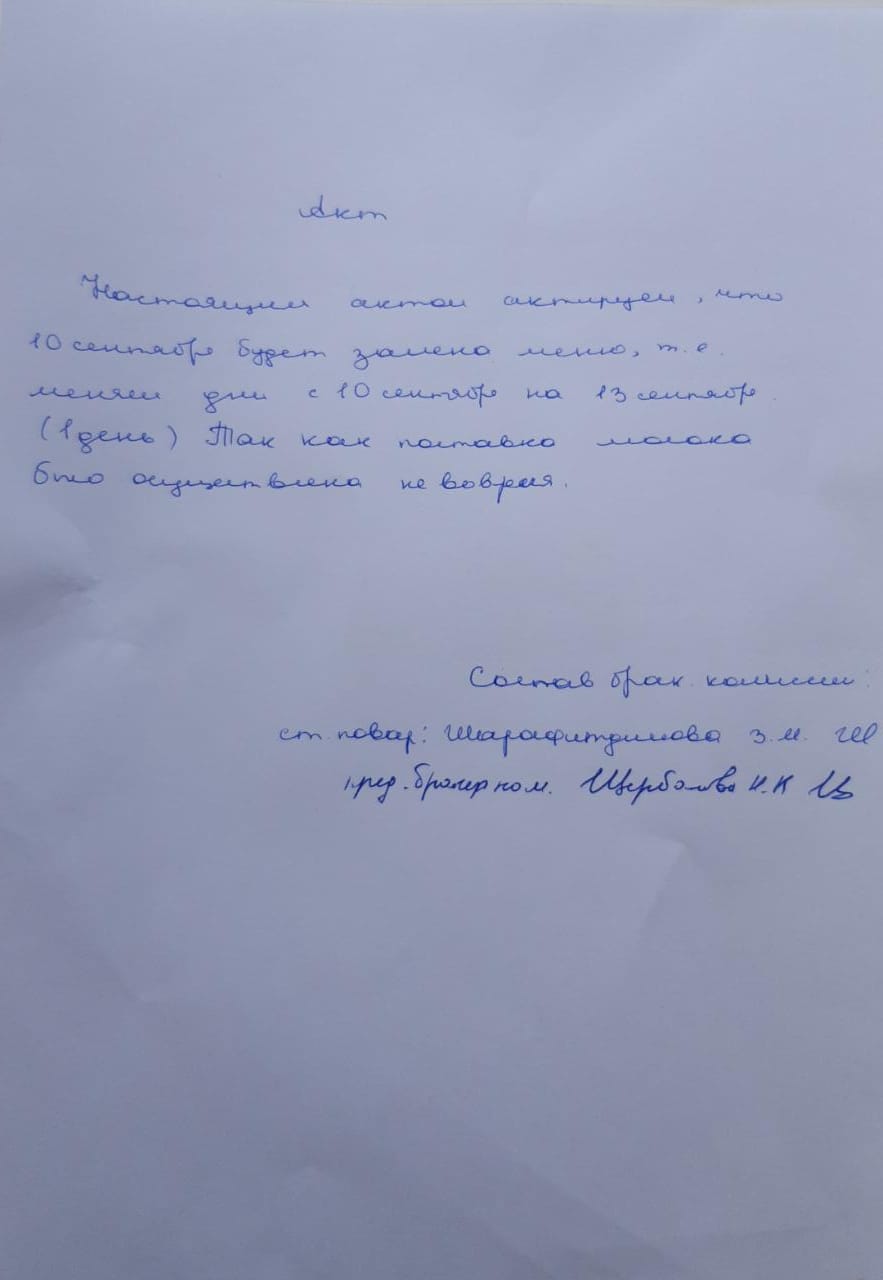 Акт
Настоящим актом актируем, что
10 сентября будет замена меню, т.е.
меняем дни с 10 сентября на 13 сентября.
(1 день) Так как поставка молока
было осуществлена не вовремя.
Состав брак. комиссии:
ст. повар: Шарафитдинова З.М. Ш
пред. бракер ком. Щербакова Н.К